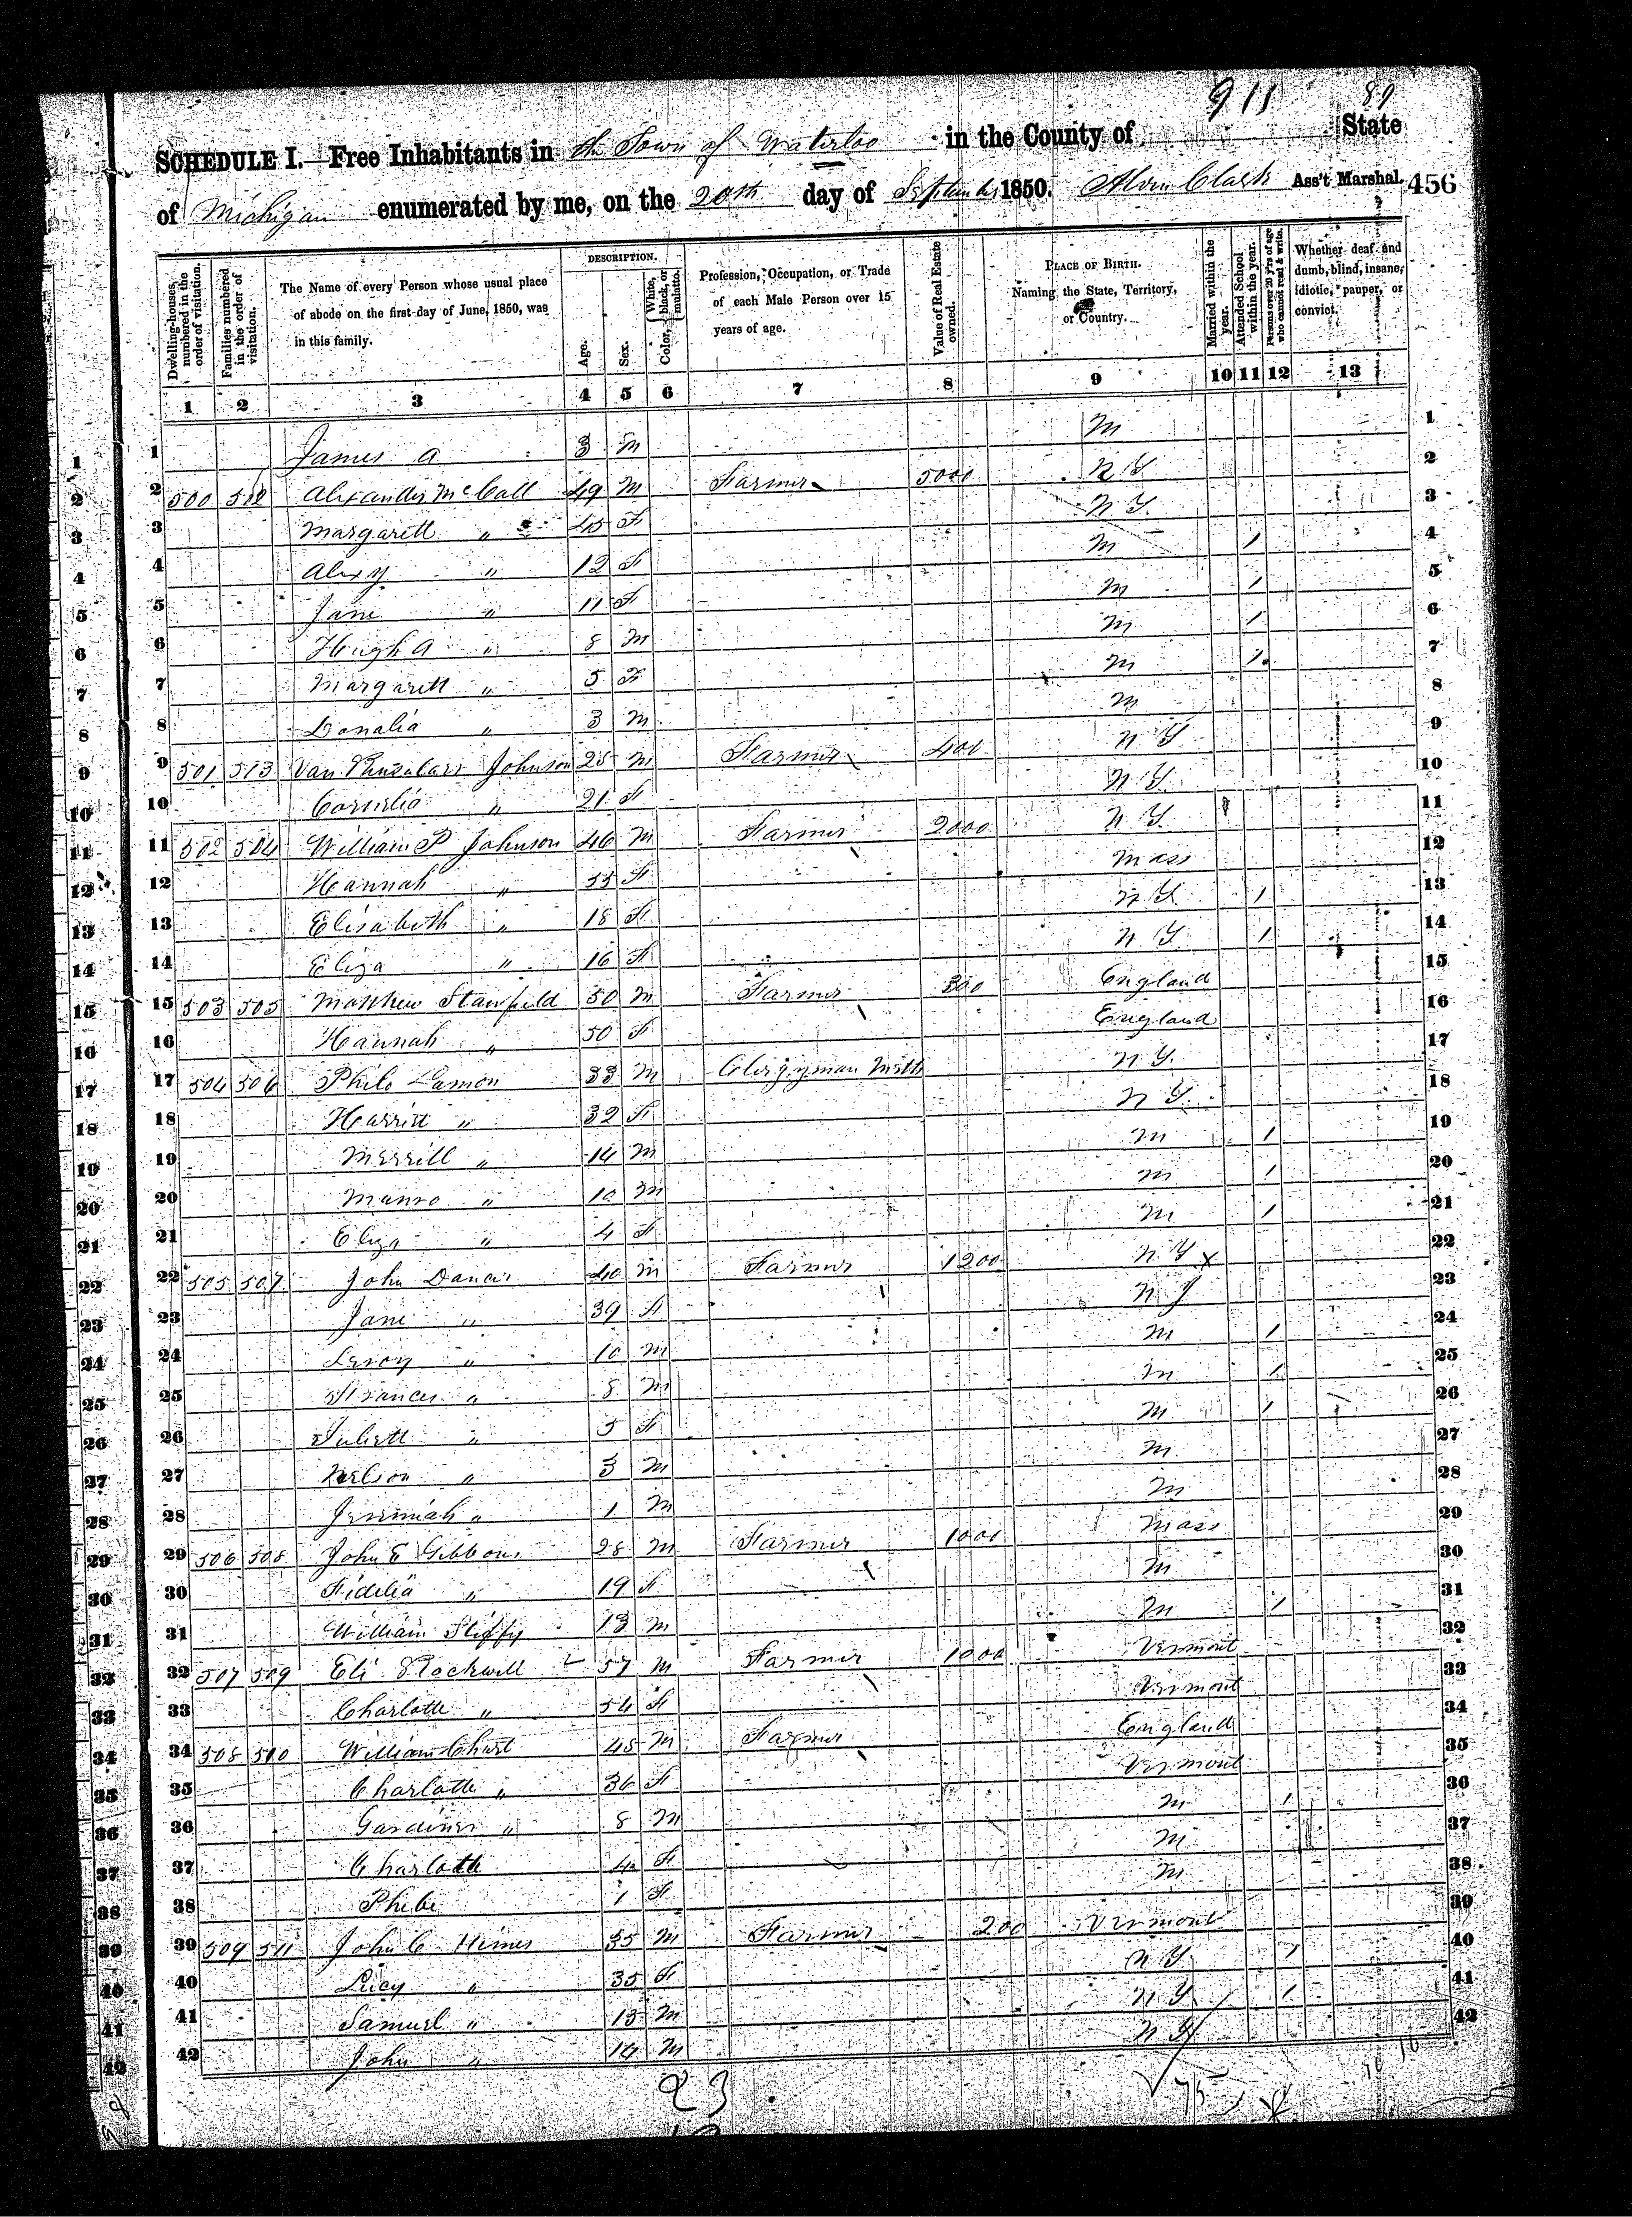 911 89
SCHEDULE I. Free Inhabitants in the Town of Waterloo in the County of State
of Michigan enumerated by me, on the 20th day of September 1850. Alvin Clark Ass't Marshal. 456
Dwelling-houses, numbered in the order of visitation.
Families numbered in the order of visitation.
The Name of every Person whose usual place of abode on the first day of June, 1850, was in this family.
DESCRIPTION.
Age.
Sex.
Color, White, black, or mulatto.
Profession, Occupation, or Trade of each Male Person over 15 years of age.
Value of Real Estate owned.
PLACE OF BIRTH. Naming the State, Territory, or Country.
Married within the year.
Attended School within the year.
Persons over 20 y'rs of age who cannot read & write.
Whether deaf and dumb, blind, insane, idiotic, pauper, or convict.
1 2 3 4 5 6 7 8 9 10 11 12 13
1 James A 3 M M 1
2 500 502 Alexander McCall 49 M Farmer 5000 N Y 2
3 Margarett " 45 F N Y 3
4 Alexy " 12 F M 1 4
5 Jane " 11 F M 1 5
6 Hugh A " 8 M M 1 6
7 Margarett " 5 F M 1 7
8 Donalia " 3 M M 8
9 501 503 Van Johnson 25 M Farmer 400 N Y 9
10 Cornelia " 21 F N Y 10
11 502 504 William P Johnson 46 M Farmer 2000 N Y 11
12 Hannah " 55 F Mass 12
13 Elisabeth " 18 F N Y 1 13
14 Eliza " 16 F N Y 1 14
15 503 505 Matthew Stanfield 50 M Farmer 300 England 15
16 Hannah " 50 F England 16
17 504 506 Philo Lamon 33 M Clergyman Meth N Y 17
18 Harriet " 32 F N Y 18
19 Merrill " 14 M M 1 19
20 Munro " 10 M M 1 20
21 Eliza " 4 F M 1 21
22 505 507 John Dancer 40 M Farmer 1200 N Y x 22
23 Jane " 39 F N J 23
24 Leroy " 10 M M 1 24
25 Frances " 8 M M 1 25
26 Juliett " 5 F M 1 26
27 Nelson " 3 M M 27
28 Jeremiah " 1 M M 28
29 506 508 John E Gibbons 28 M Farmer 1000 Mass 29
30 Fidelia " 19 F M 30
31 William 13 M M 1 31
32 507 509 Eli Rockwell 57 M Farmer 1000 Vermont 32
33 Charlotte " 54 F Vermont 33
34 508 510 William 45 M Farmer England 34
35 Charlotte " 36 F Vermont 35
36 Gardiner " 8 M M 1 36
37 Charlotte 4 F M 37
38 Phebe 1 F M 38
39 509 511 John C Himes 35 M Farmer 200 Vermont 39
40 Lucy " 35 F N Y 1 40
41 Samuel " 15 M N Y 1 41
42 John " 14 M N Y 42
23 75